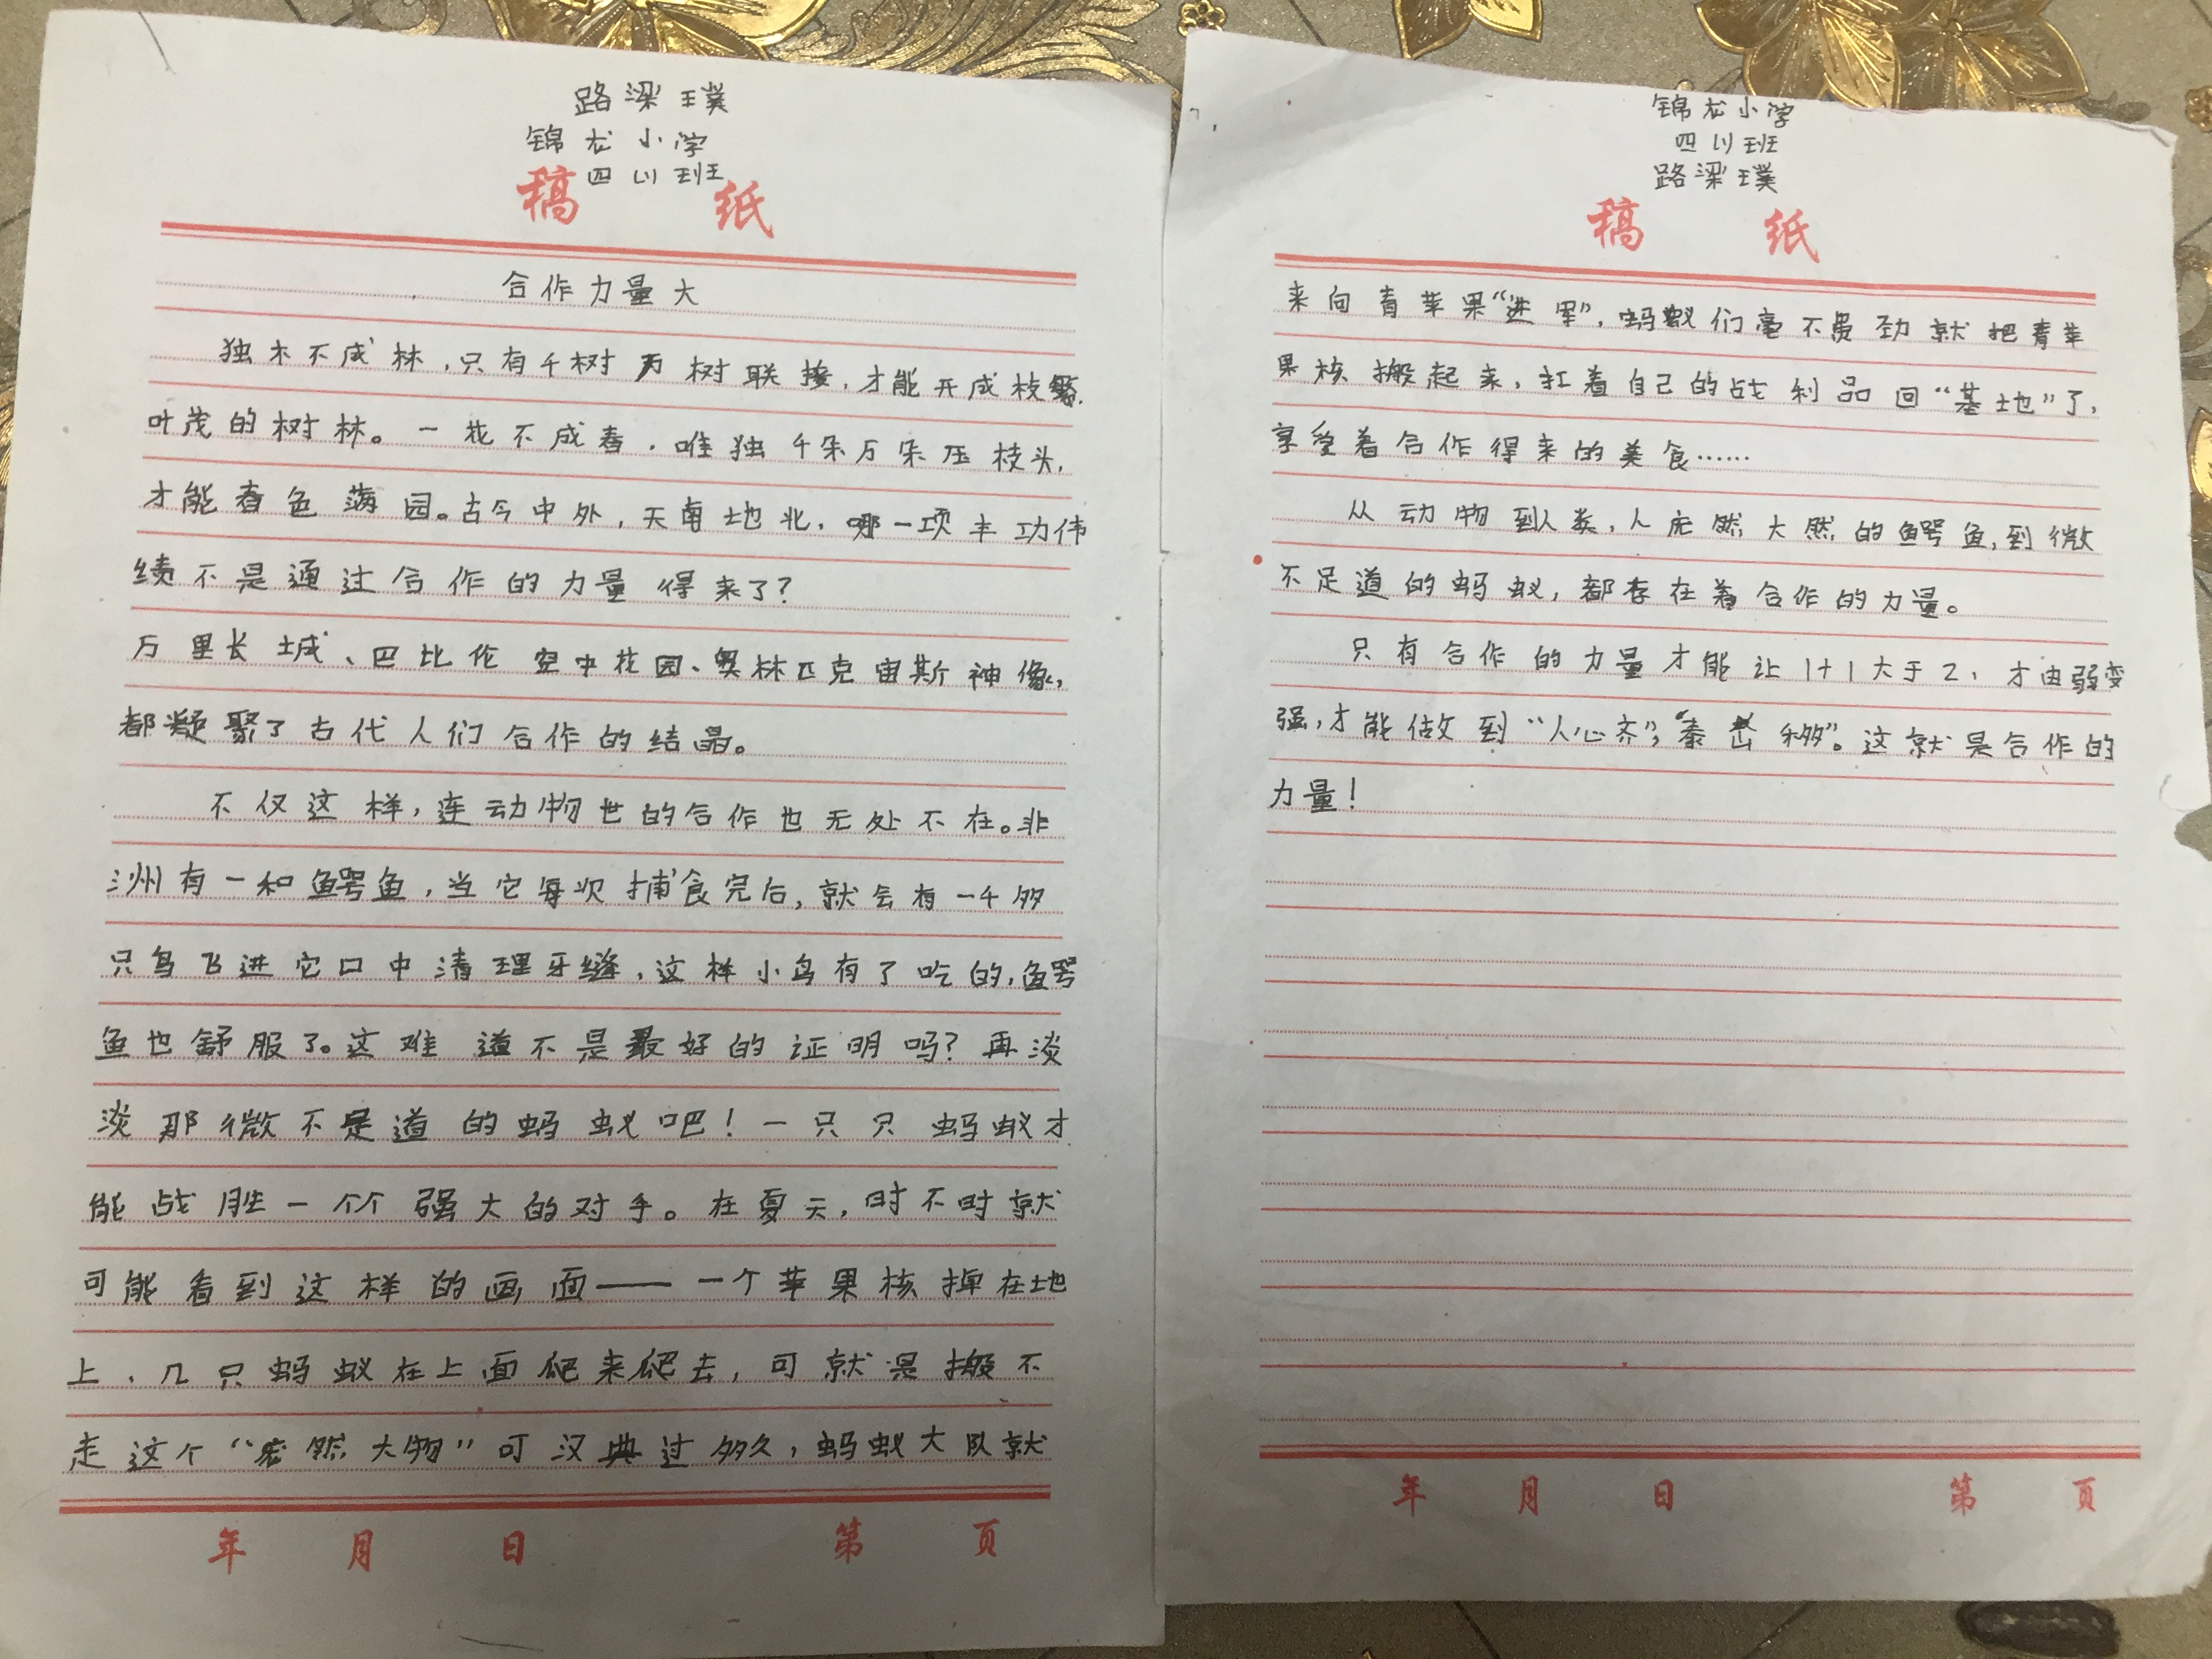 路梁璞
锦龙小学
四(1)班
稿 纸
合作力量大
独木不成林,只有千树万树联接,才能开成枝繁
叶茂的树林。一花不成春,唯独千朵万朵压枝头,
才能春色满园。古今中外,天南地北,哪一项丰功伟
绩不是通过合作的力量得来了?
万里长城、巴比伦空中花园、奥林匹克宙斯神像,
都凝聚了古代人们合作的结晶。
不仅这样,连动物世的合作也无处不在。非
洲有一种鳄鱼,当它每次捕食完后,就会有一千多
只鸟飞进它口中清理牙缝,这样小鸟有了吃的,鳄
鱼也舒服了。这难道不是最好的证明吗?再淡
淡那微不足道的蚂蚁吧!一只只蚂蚁才
能战胜一个个强大的对手。在夏天,时不时就
可能看到这样的画面——一个苹果核掉在地
上,几只蚂蚁在上面爬来爬去,可就是搬不
走这个“庞然大物”可没过多久,蚂蚁大队就
锦龙小学
四(1)班
路梁璞
稿 纸
来向青苹果“进军”,蚂蚁们毫不费劲就把青苹
果核搬起来,扛着自己的战利品回“基地”了,
享受着合作得来的美食……
从动物到人类,人庞然大然的鳄鱼,到微
不足道的蚂蚁,都存在着合作的力量。
只有合作的力量才能让1+1大于2,才由弱变
强,才能做到“人心齐,泰山移”。这就是合作的
力量!
年 月 日 第 页
年 月 日 第 页